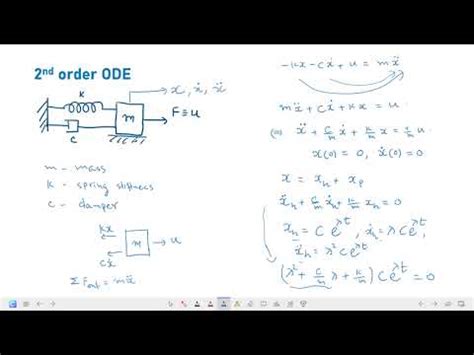 2nd order ODE
x, ẋ, ẍ
k
m
F ≡ u
c
m - mass
k - spring stiffness
c - damper
kx
cẋ
m
u
Σ Fext = mẍ
-kx - cẋ + u = mẍ
mẍ + cẋ + kx = u
(or) ẍ + c/m ẋ + k/m x = 1/m u
x(0) = 0, ẋ(0) = 0
x = xh + xp
ẍh + c/m ẋh + k/m xh = 0
xh = C e^λt, ẋh = λ C e^λt,
ẍh = λ² C e^λt
(λ² + c/m λ + k/m) C e^λt = 0